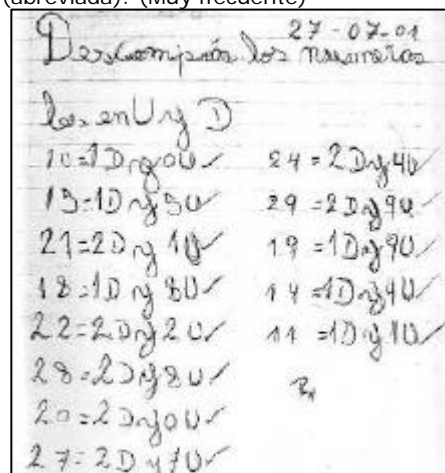 (abreviada)? (Muy frecuente)
27-07-01
Descompón los numeros
les en U y D
10=1D y 0U ✓
15=1D y 5U ✓
21=2D y 1U ✓
18=1D y 8U ✓
22=2D y 2U ✓
28=2D y 8U ✓
20=2D y 0U ✓
27=2D y 7U ✓
24=2D y 4U ✓
29=2D y 9U ✓
19=1D y 9U ✓
14=1D y 4U ✓
11=1D y 1U ✓